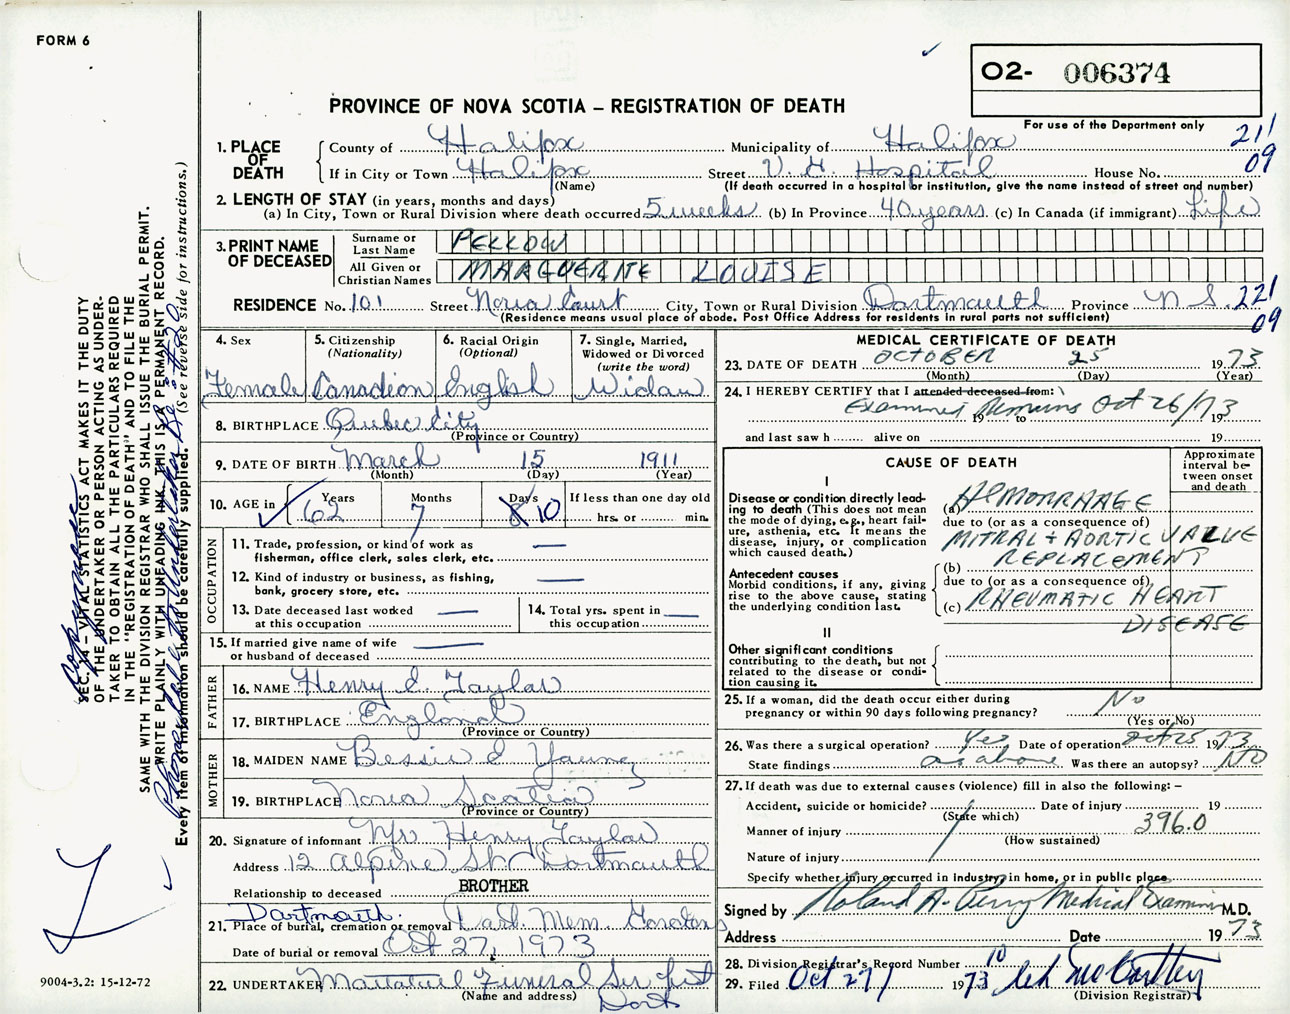 FORM 6
O2- 006374
PROVINCE OF NOVA SCOTIA – REGISTRATION OF DEATH
For use of the Department only
211
09
1. PLACE OF DEATH { County of Halifax Municipality of Halifax
If in City or Town Halifax Street V. G. Hospital House No.
(Name) (If death occurred in a hospital or institution, give the name instead of street and number)
2. LENGTH OF STAY (in years, months and days)
(a) In City, Town or Rural Division where death occurred 5 weeks (b) In Province 40 years (c) In Canada (if immigrant) Life
3. PRINT NAME OF DECEASED
Surname or Last Name PELLOW
All Given or Christian Names MARGUERITE LOUISE
RESIDENCE No. 101 Street Noria Court City, Town or Rural Division Dartmouth Province N S.
(Residence means usual place of abode. Post Office Address for residents in rural parts not sufficient)
221
09
4. Sex Female
5. Citizenship (Nationality) Canadian
6. Racial Origin (Optional) English
7. Single, Married, Widowed or Divorced (write the word) Widow
8. BIRTHPLACE Quebec City
(Province or Country)
9. DATE OF BIRTH March 15 1911
(Month) (Day) (Year)
10. AGE in { Years 62 Months 7 Days 8 10 If less than one day old
hrs. or min.
OCCUPATION
11. Trade, profession, or kind of work as —
fisherman, office clerk, sales clerk, etc.
12. Kind of industry or business, as fishing, —
bank, grocery store, etc.
13. Date deceased last worked at this occupation —
14. Total yrs. spent in this occupation —
15. If married give name of wife or husband of deceased —
FATHER
16. NAME Henry E. Taylor
17. BIRTHPLACE England
(Province or Country)
MOTHER
18. MAIDEN NAME Bessie E Young
19. BIRTHPLACE Nova Scotia
(Province or Country)
20. Signature of informant Mr Henry Taylor
Address 12 Alpine St. Dartmouth
Relationship to deceased BROTHER
Dartmouth.
21. Place of burial, cremation or removal Dart. Mem Gardens
Date of burial or removal Oct 27, 1973
22. UNDERTAKER Mattatall Funeral Ser
(Name and address) Dart
MEDICAL CERTIFICATE OF DEATH
23. DATE OF DEATH OCTOBER 25 1973
(Month) (Day) (Year)
24. I HEREBY CERTIFY that I attended deceased from:
Examined Remains Oct 26/73
19 to 19
and last saw h alive on 19
CAUSE OF DEATH
Approximate interval between onset and death
I
Disease or condition directly leading to death (This does not mean the mode of dying, e.g., heart failure, asthenia, etc. It means the disease, injury, or complication which caused death.)
(a) HEMORRHAGE
due to (or as a consequence of)
MITRAL + AORTIC VALVE
(b) REPLACEMENT
Antecedent causes
Morbid conditions, if any, giving rise to the above cause, stating the underlying condition last.
due to (or as a consequence of)
(c) RHEUMATIC HEART
DISEASE
II
Other significant conditions
contributing to the death, but not related to the disease or condition causing it.
25. If a woman, did the death occur either during
pregnancy or within 90 days following pregnancy? No
(Yes or No)
26. Was there a surgical operation? Yes Date of operation Oct 25 1973
State findings as above Was there an autopsy? NO
27. If death was due to external causes (violence) fill in also the following: –
Accident, suicide or homicide? Date of injury 19
(State which)
Manner of injury 396.0
(How sustained)
Nature of injury
Specify whether injury occurred in industry, in home, or in public place
Signed by Roland A. Perry Medical Examiner M.D.
Address Date 1973
28. Division Registrar's Record Number 10
29. Filed Oct 27/ 1973
(Division Registrar)
SEC. 14 – VITAL STATISTICS ACT MAKES IT THE DUTY
OF THE UNDERTAKER OR PERSON ACTING AS UNDER-
TAKER TO OBTAIN ALL THE PARTICULARS REQUIRED
IN THE "REGISTRATION OF DEATH" AND TO FILE THE
SAME WITH THE DIVISION REGISTRAR WHO SHALL ISSUE THE BURIAL PERMIT.
WRITE PLAINLY WITH UNFADING INK. THIS IS A PERMANENT RECORD.
Every item of information should be carefully supplied. (See reverse side for instructions.)
9004-3.2: 15-12-72